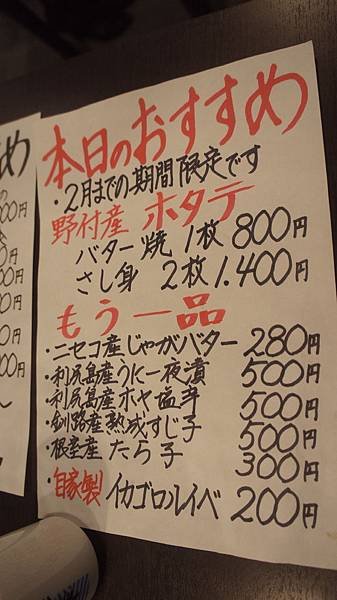 本日のおすすめ
・2月までの期間限定です
野付産 ホタテ
バター焼 1枚 800円
さし身 2枚 1.400円
もう一品
・ニセコ産じゃがバター 280円
・利尻島産うに一夜漬 500円
・利尻島産ホヤ塩辛 500円
・釧路産熟成すじ子 500円
・根室産 たら子 300円
・自家製 イカゴロルイベ 200円
め
00円
円
円
円
円
00円